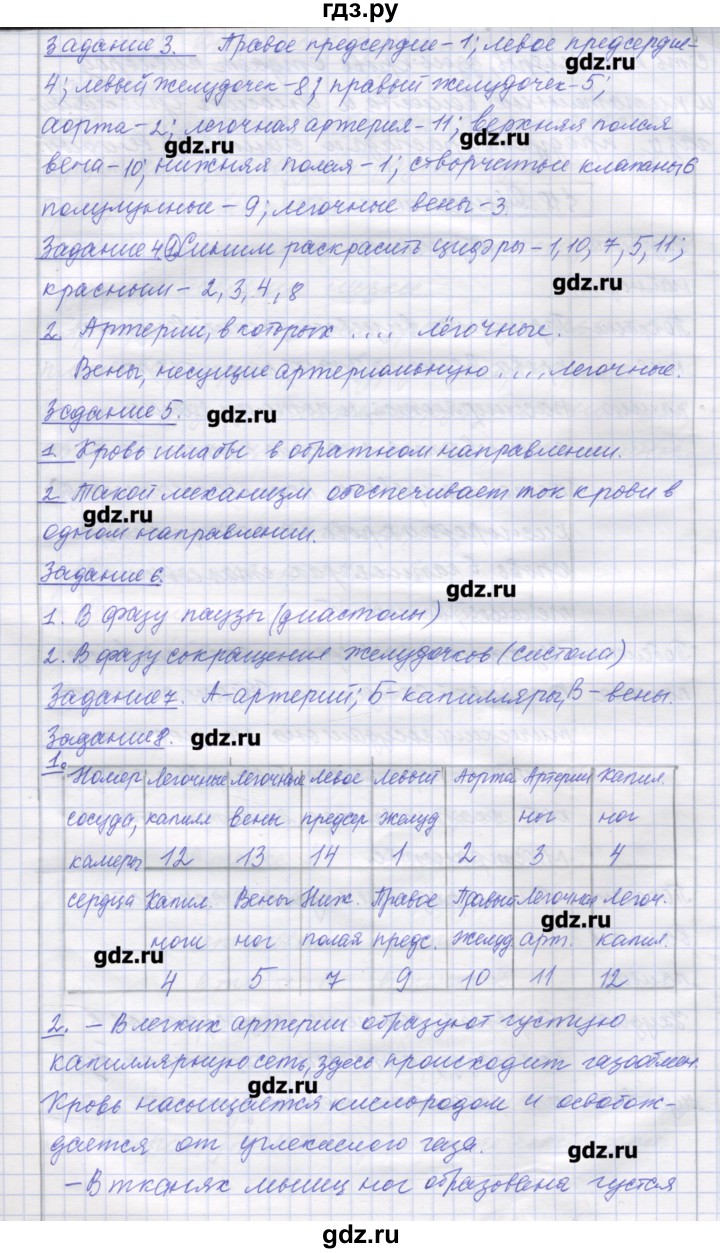 гдз.ру
Задание 3. Правое предсердие - 1; левое предсердие -
gdz.ru
4; левый желудочек - 8; правый желудочек - 5;
аорта - 2; легочная артерия - 11; верхняя полая
gdz.ru gdz.ru
вена - 10; нижняя полая - 1; створчатые клапаны 6
полулунные - 9; легочные вены - 3.
Задание 4. 1 Синим раскрасить цифры - 1, 10, 7, 5, 11;
gdz.ru
красным - 2, 3, 4, 8
2. Артерии, в которых .... лёгочные.
Вены, несущие артериальную .... легочные.
Задание 5. gdz.ru
1. Кровь шла бы в обратном направлении.
2. Такой механизм обеспечивает ток крови в
gdz.ru
одном направлении.
Задание 6. gdz.ru
1. В фазу паузы (диастолы)
2. В фазу сокращения желудочков (систола)
Задание 7. А - артерий; Б - капилляры, В - вены.
Задание 8. gdz.ru
1.
Номер Легочные Легочные Левое Левый Аорта Артерии Капил.
сосуда, капилл вены предсер желуд ног ног
камеры 12 13 14 1 2 3 4
сердца Капил. Вены Ниж. Правое Правый Легочная Легоч.
gdz.ru
ноги ног полая предс. желуд арт. капил.
gdz.ru
4 5 7 9 10 11 12
2. - В легких артерии образуют густую
капиллярную сеть, здесь происходит газообмен.
gdz.ru
Кровь насыщается кислородом и освобож-
дается от углекислого газа.
gdz.ru
- В тканях мышц ног образована густая
gdz.ru